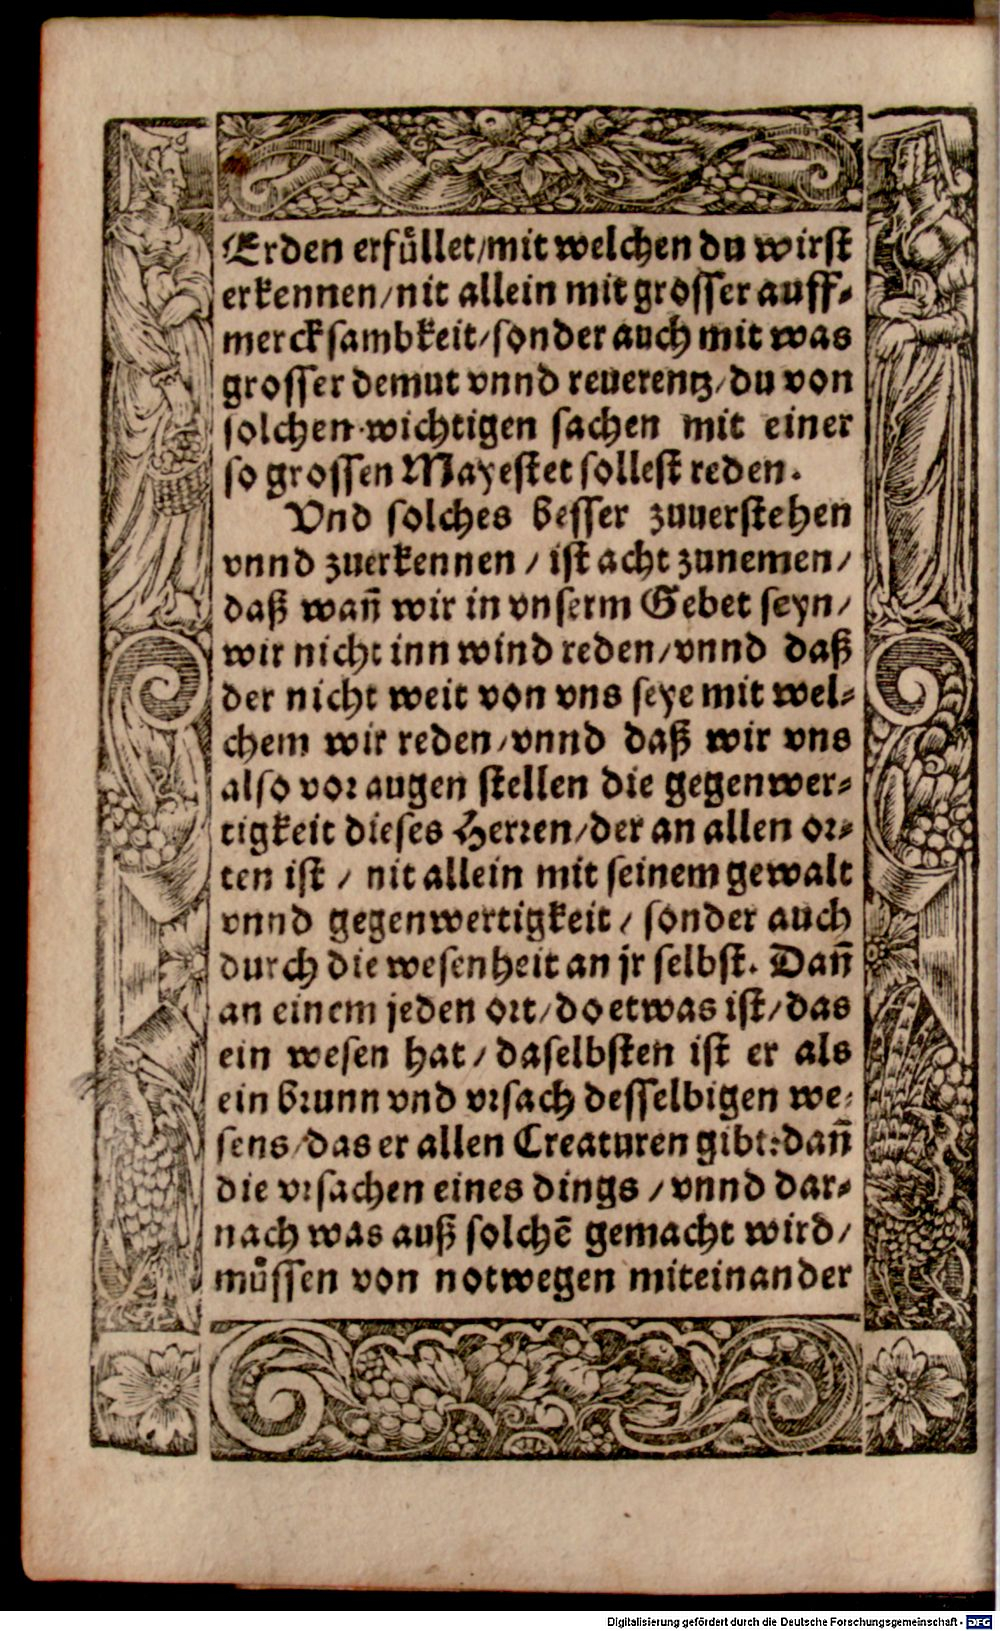 Erden erfuͤllet/mit welchen du wirst
erkennen/nit allein mit grosser auff⸗
mercksambkeit/sonder auch mit was
grosser demut vnnd reuerentz/du von
solchen wichtigen sachen mit einer
so grossen Mayestet sollest reden.
Vnd solches besser zuuerstehen
vnnd zuerkennen / ist acht zunemen/
daß wañ wir in vnserm Gebet seyn/
wir nicht inn wind reden/vnnd daß
der nicht weit von vns seye mit wel⸗
chem wir reden/vnnd daß wir vns
also vor augen stellen die gegenwer⸗
tigkeit dieses Herren/der an allen or⸗
ten ist / nit allein mit seinem gewalt
vnnd gegenwertigkeit / sonder auch
durch die wesenheit an jr selbst. Dañ
an einem jeden ort/do etwas ist/das
ein wesen hat/daselbsten ist er als
ein brunn vnd vrsach desselbigen we⸗
sens/das er allen Creaturen gibt:dañ
die vrsachen eines dings / vnnd dar⸗
nach was auß solchē gemacht wird/
muͤssen von notwegen miteinander
Digitalisierung gefördert durch die Deutsche Forschungsgemeinschaft - DFG